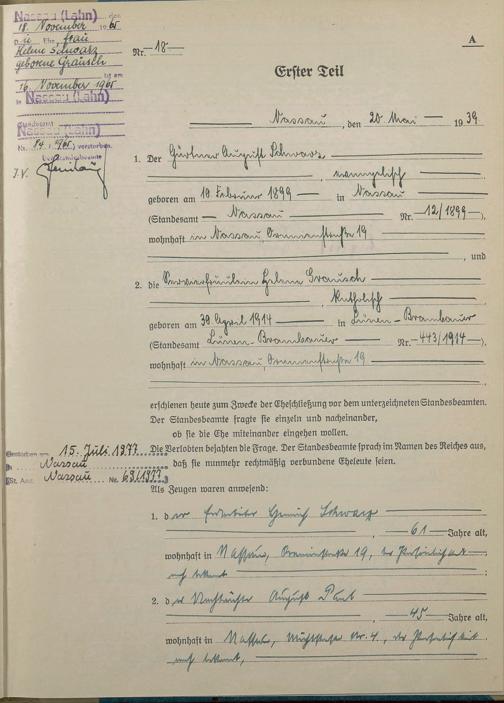 Nassau (Lahn) den
18. November 1965
Die Ehefrau
Helene Schwarz
geborene Grausch
ist am
16. November 1965
in Nassau (Lahn)
Standesamt
Nassau (Lahn)
Nr. 84/1965 verstorben.
Der Standesbeamte
J.V.
A
Nr. 18
Erster Teil
Nassau, den 20. Mai 1939
1. Der Gärtner August Schwarz
, evangelisch
geboren am 18. Februar 1899 in Nassau
(Standesamt Nassau Nr. 12/1899),
wohnhaft in Nassau, Oranienstraße 19
, und
2. die Servierfräulein Helene Grausch
, katholisch
geboren am 30. April 1914 in Lünen-Brambauer
(Standesamt Lünen-Brambauer Nr. 443/1914),
wohnhaft in Nassau, Oranienstraße 19
erschienen heute zum Zwecke der Eheschließung vor dem unterzeichneten Standesbeamten.
Der Standesbeamte fragte sie einzeln und nacheinander,
ob sie die Ehe miteinander eingehen wollen.
Die Verlobten bejahten die Frage. Der Standesbeamte sprach im Namen des Reiches aus,
daß sie nunmehr rechtmäßig verbundene Eheleute seien.
Gestorben am 15. Juli 1977
in Nassau
St. Amt Nassau Nr. 69/1977
Als Zeugen waren anwesend:
1. der Heinrich Schwarz
, 61 Jahre alt,
wohnhaft in Nassau, Oranienstraße 19, der Persönlichkeit
nach bekannt ;
2. der August Paul
, 45 Jahre alt,
wohnhaft in Nassau, Nr. 4, der Persönlichkeit
nach bekannt,